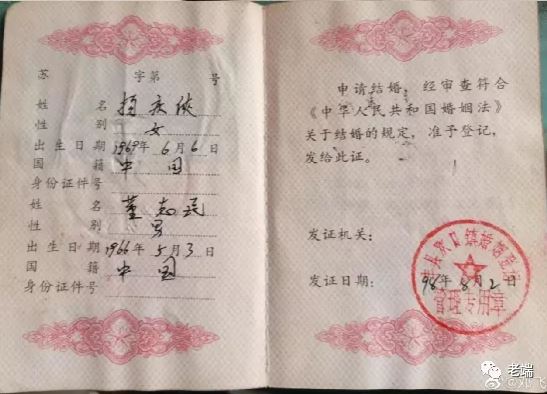 苏 字第 号
姓 名 杨庆侠
性 别 女
出生日期 1969年6月6日
国 籍 中国
身份证件号
姓 名 董志民
性 别 男
出生日期 1966年5月3日
国 籍 中国
身份证件号
申请结婚,经审查符合
《中华人民共和国婚姻法》
关于结婚的规定,准予登记,
发给此证。
发证机关:
县欢口镇婚姻登记
管理专用章
发证日期: 98年8月2日
老端